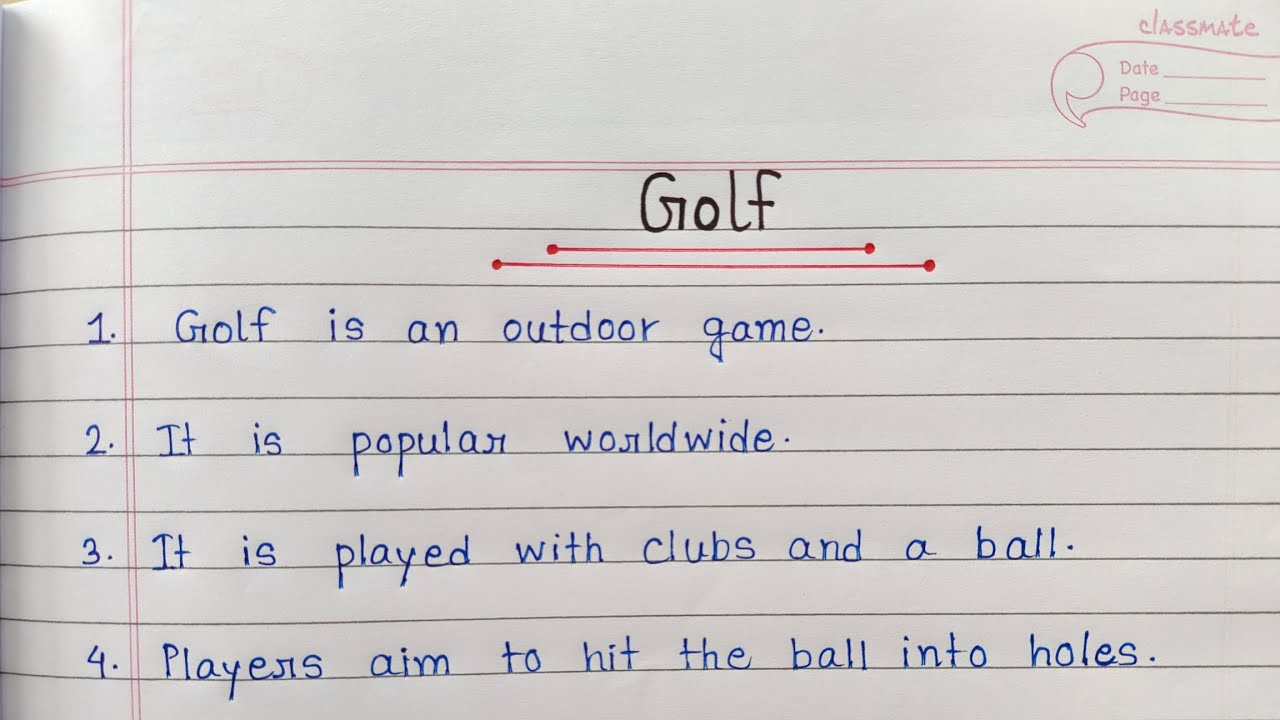 classmate
Date
Page
Golf
1. Golf is an outdoor game.
2. It is popular worldwide.
3. It is played with clubs and a ball.
4. Players aim to hit the ball into holes.